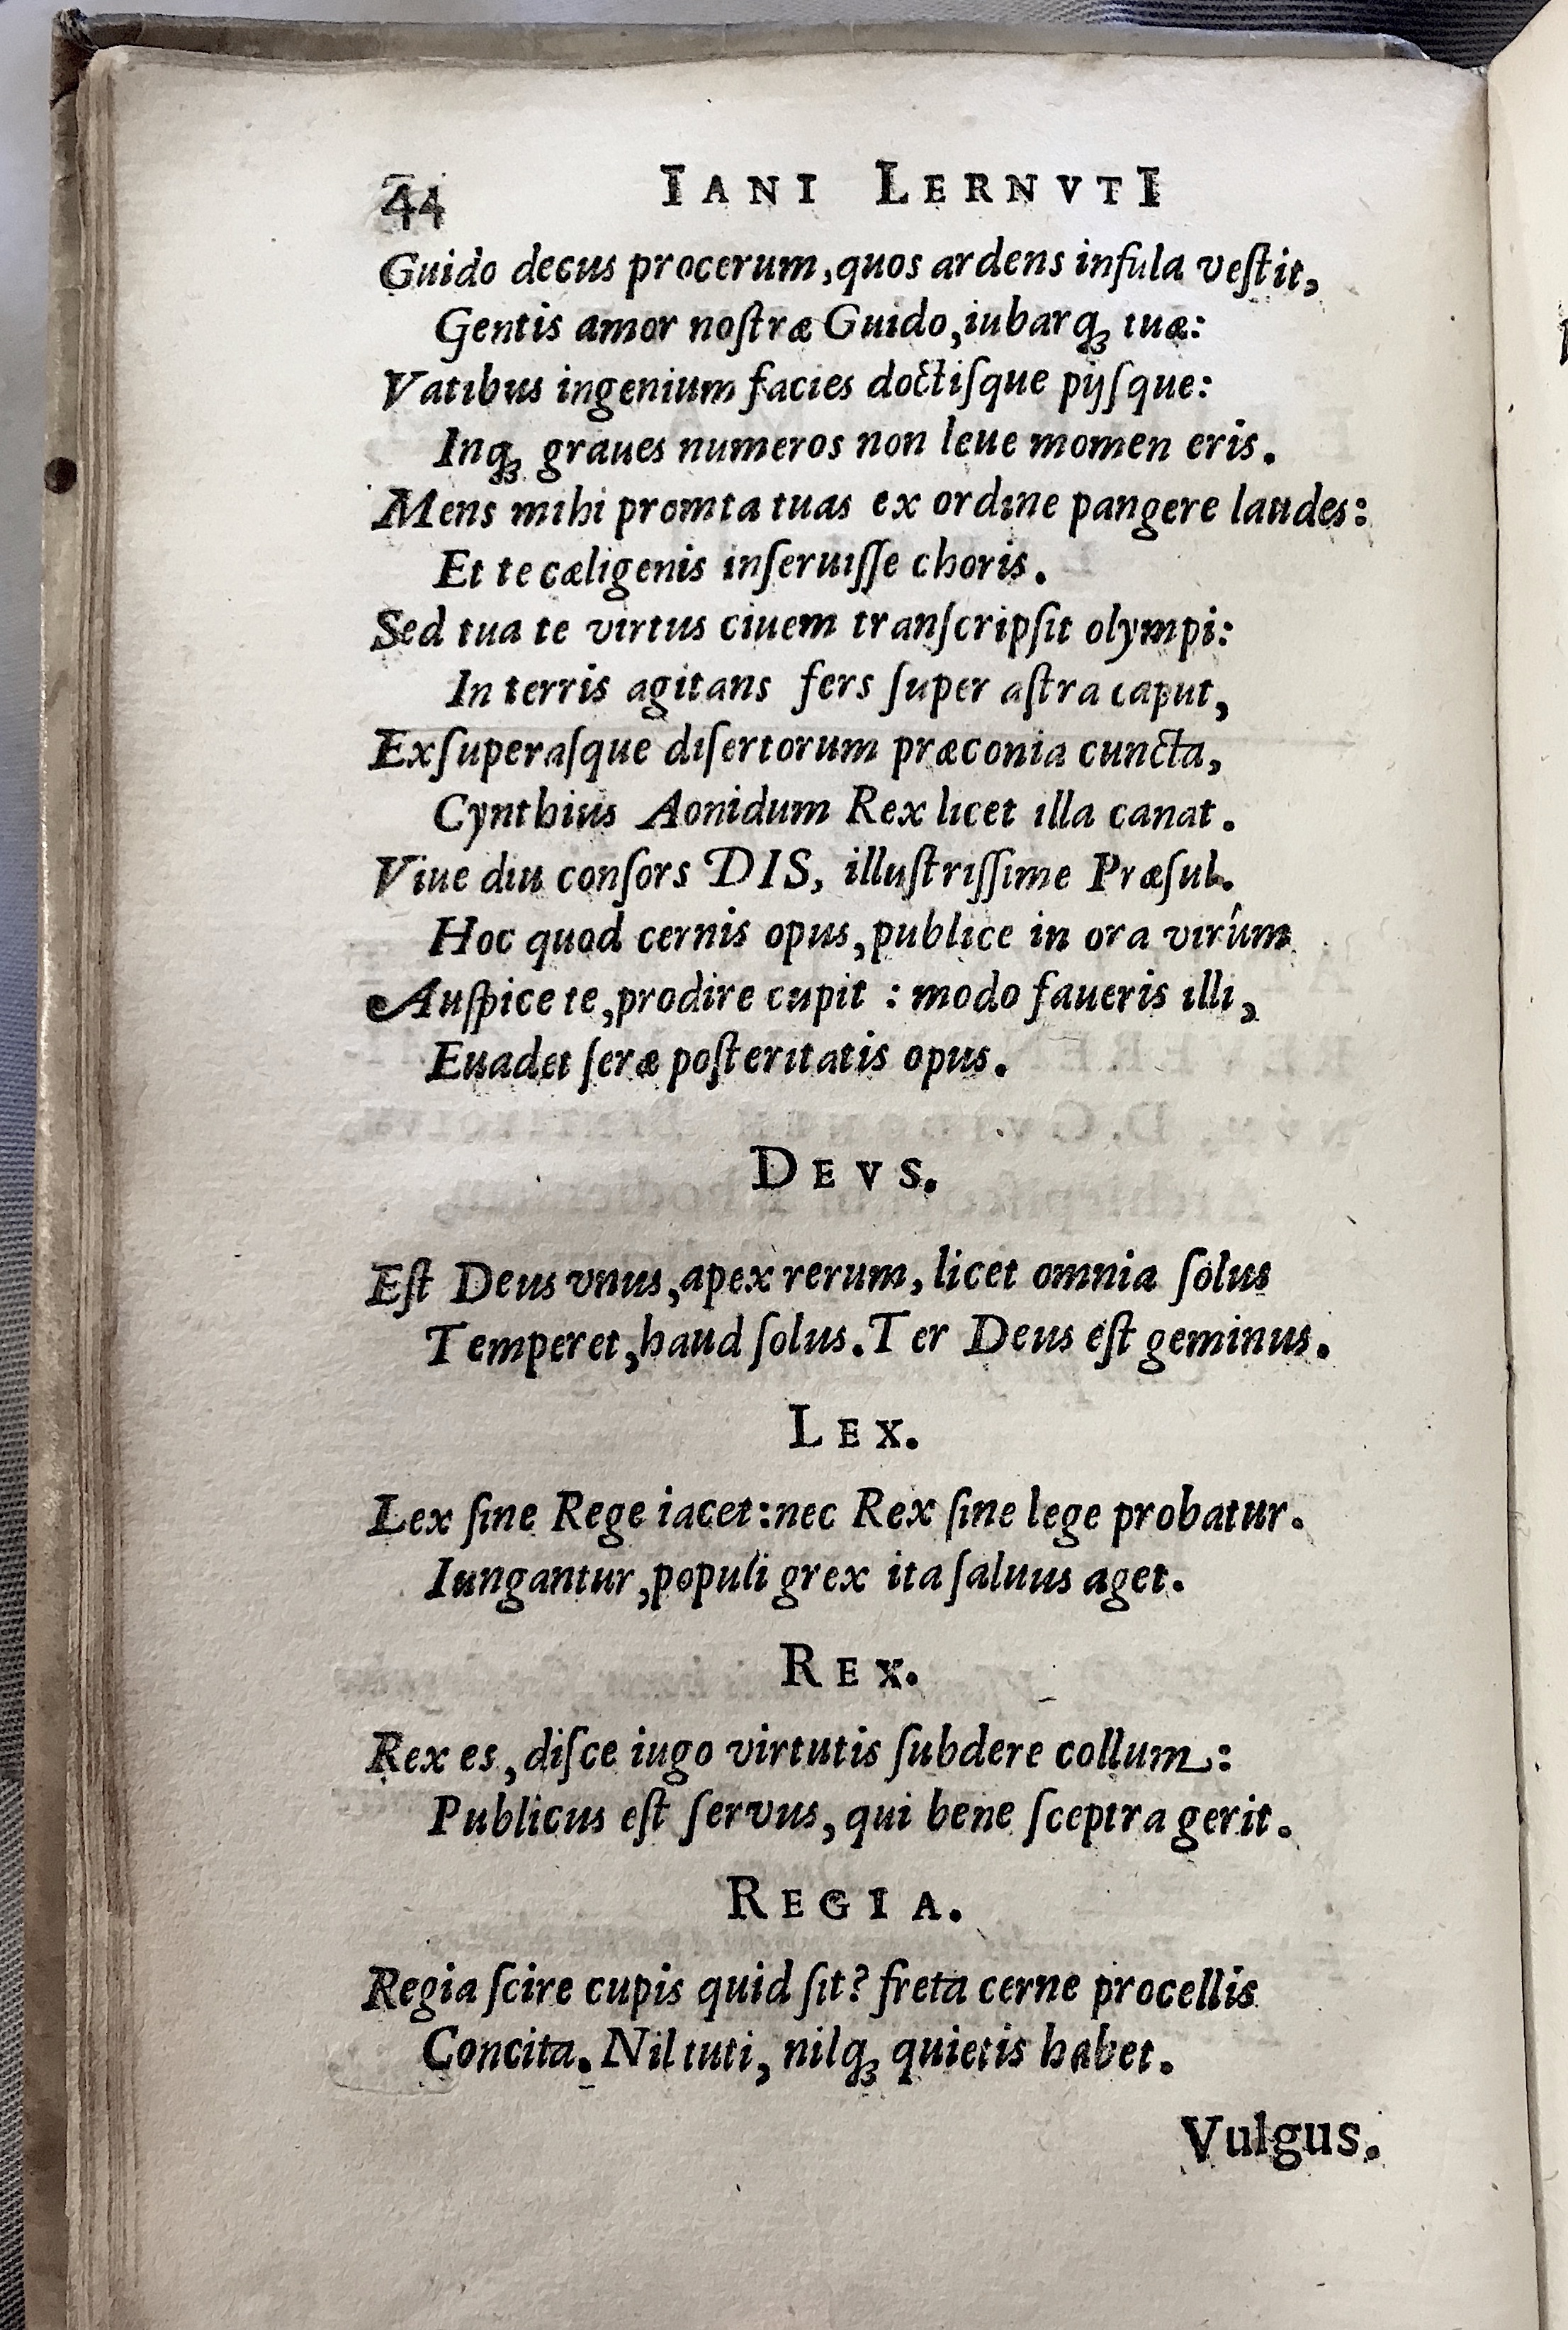 44 IANI LERNVTI
Guido decus procerum, quos ardens infula veſtit,
Gentis amor noſtræ Guido, iubarq́ꝫ tuæ:
Vatibus ingenium facies doctiſque pijſque:
Inq́ꝫ graues numeros non leue momen eris.
Mens mihi promta tuas ex ordine pangere laudes:
Et te cæligenis inſeruiſſe choris.
Sed tua te virtus ciuem tranſcripſit olympi:
In terris agitans fers ſuper aſtra caput,
Exſuperaſque diſertorum præconia cuncta,
Cynthius Aonidum Rex licet illa canat.
Viue diu conſors DIS, illuſtriſſime Præſul.
Hoc quod cernis opus, publice in ora virûm
Auſpice te, prodire cupit : modo faueris illi,
Euadet ſeræ poſteritatis opus.
DEVS.
Eſt Deus vnus, apex rerum, licet omnia ſolus
Temperet, haud ſolus. Ter Deus eſt geminus.
LEX.
Lex ſine Rege iacet: nec Rex ſine lege probatur.
Iungantur, populi grex ita ſaluus aget.
REX.
Rex es, diſce iugo virtutis ſubdere collum:
Publicus eſt ſervus, qui bene ſceptra gerit.
REGIA.
Regia ſcire cupis quid ſit? freta cerne procellis
Concita. Nil tuti, nilq́ꝫ quietis habet.
Vulgus.